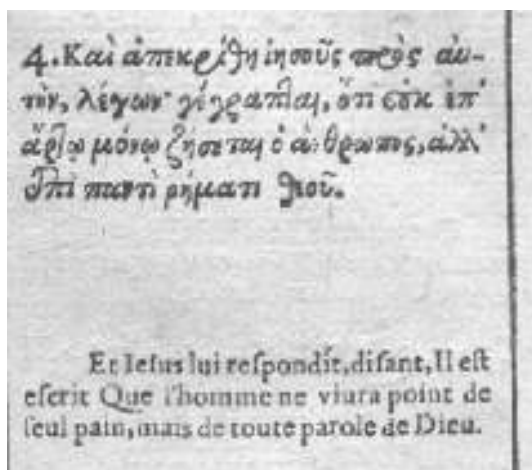 4. Καὶ ἀπεκρίθη ἰησοῦς πρὸς αὐ-
τὸν, λέγων· γέγραπται, ὅτι οὐκ ἐπ᾽
ἄρτῳ μόνῳ ζήσεται ὁ ἄνθρωπος, ἀλλ᾽
ἐπὶ παντὶ ῥήματι θεοῦ.
Et Iesus lui reſpondit, diſant, Il eſt
eſcrit Que l'homme ne viura point de
ſeul pain, mais de toute parole de Dieu.